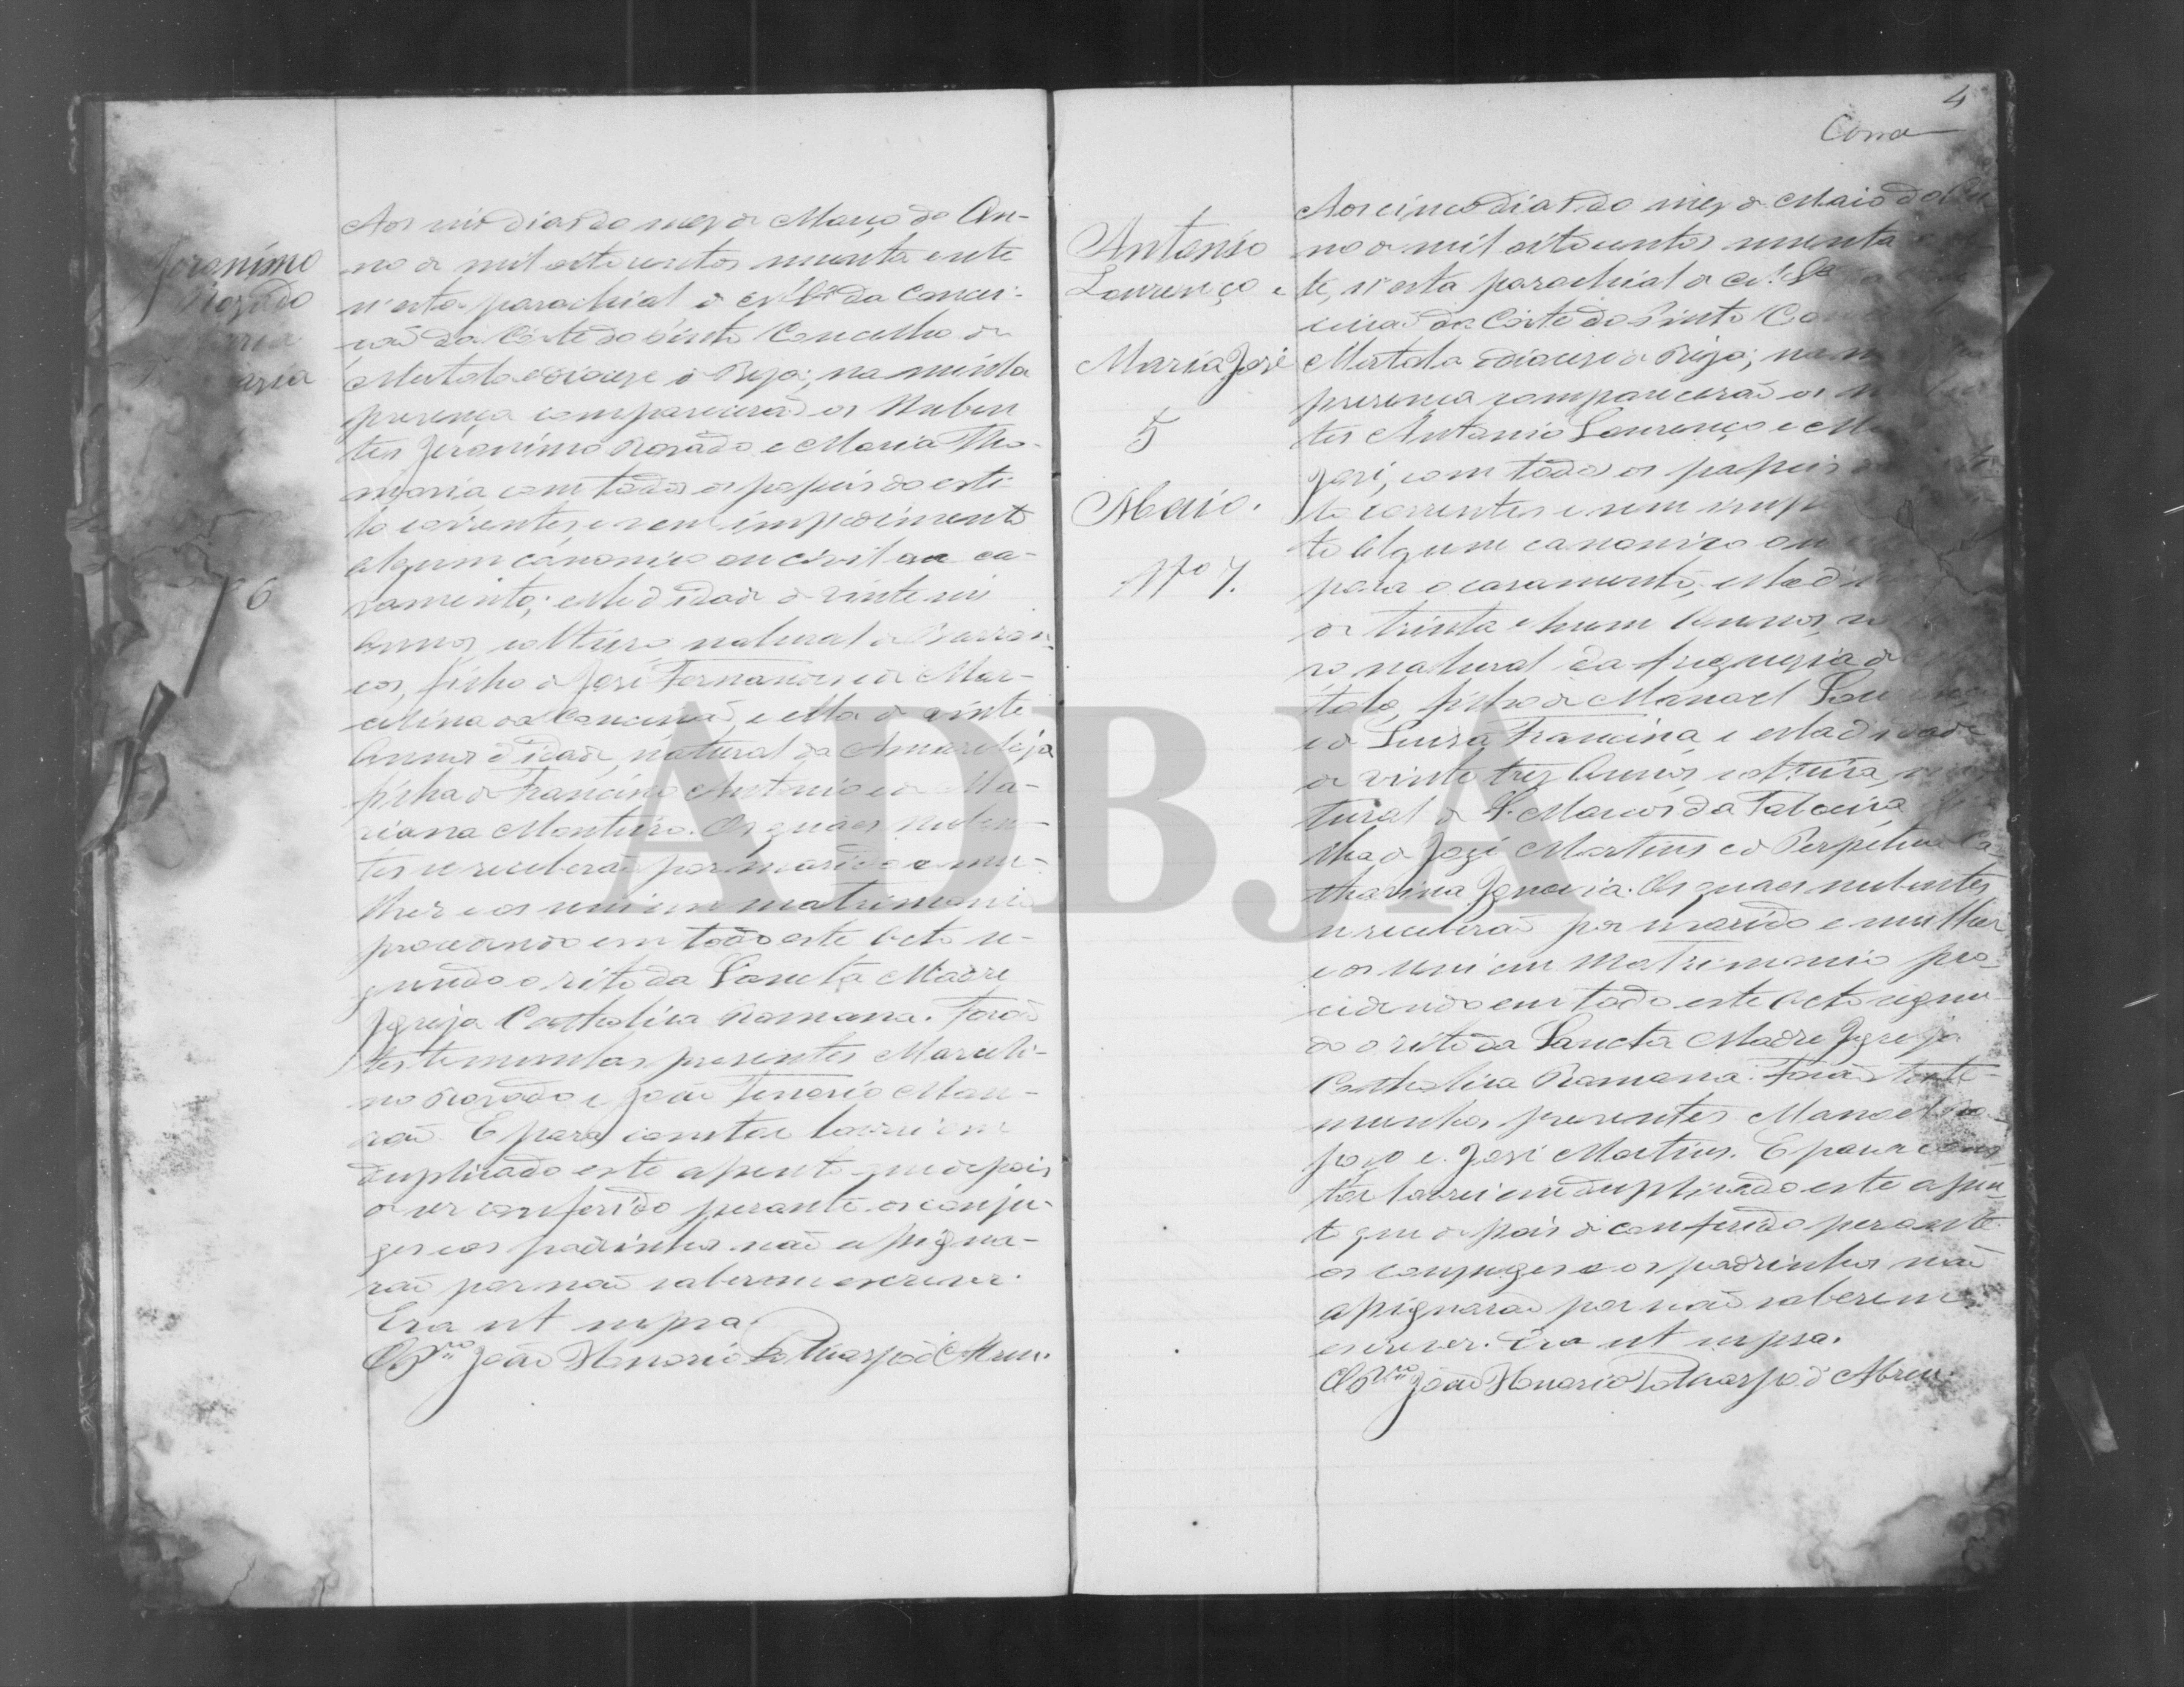 Jeronimo
Rozado
Maria
Aos seis dias do mez de Março do An-
no de mil oito centos noventa e sete
n'esta parochial de N. Sra da Concei-
ção da Côrte do Pinto Concelho de
Mertola e diocese de Beja; na minha
presença comparecerão os Nuben
tes Jeronimo Rozado e Maria Tho-
mazia, com todos os papeis do esti-
lo correntes, e sem impedimento
algum canonico ou civil ao ca-
samento; elle d'idade de vinte seis
Annos, solteiro natural de Barran-
cos, filho de José Fernandes e de Mar-
celina da Conceição, e ella de vinte
Annos d'idade, natural da Amareleja
filha de Francisco Antonio e de Ma-
riana Monteiro. Os quaes nuben-
tes se receberão por marido e mu-
lher e os uni em matrimonio
procedendo em todo este acto se-
gundo o rito da Sancta Madre
Igreja Catholica Romana. Forão
testemunhas presentes Marceli-
no Rozado e João Tenorio
E para constar lavrei em
duplicado este assento que depois
de ser conferido perante os conju-
ges e os padrinhos não assigna-
rão por não saberem escrever.
Era ut supra.
O Pro João Honorio d'Abreu.
6
4
Antonio
Lourenço e
Maria José
5
Maio.
Nº 7.
Aos cinco dias do mez de Maio do An
no de mil oito centos noventa
te, n'esta parochial de N. Sa
ceição da Côrte do Pinto
Mertola e diocese de Beja; na
presença comparecerão os
tes Antonio Lourenço e
José, com todos os papeis
lo correntes e sem
to algum canonico ou
para o casamento; elle
de trinta e hum Annos,
ro natural da freguezia de
tola, filho de Manoel
e de Luiza Francisca, e ella d'idade
de vinte trez Annos, solteira, na
tural de S. Marcos da Tabueira
lha de José Martins e de Perpetua Ca-
tharina Ignacia. Os quaes nubentes
se receberão por marido e mulher
e os uni em Matrimonio pro-
cedendo em todo este acto segun-
do o rito da Sancta Madre Igreja
Catholica Romana. Forão teste-
munhas presentes Manoel
e José Martins. E para cons-
tar lavrei em duplicado este assen-
to que depois de conferido perante
os conjuges e os padrinhos não
assignarão por não saberem
escrever. Era ut supra.
O Pro João Honorio d'Abreu.
ADBJA